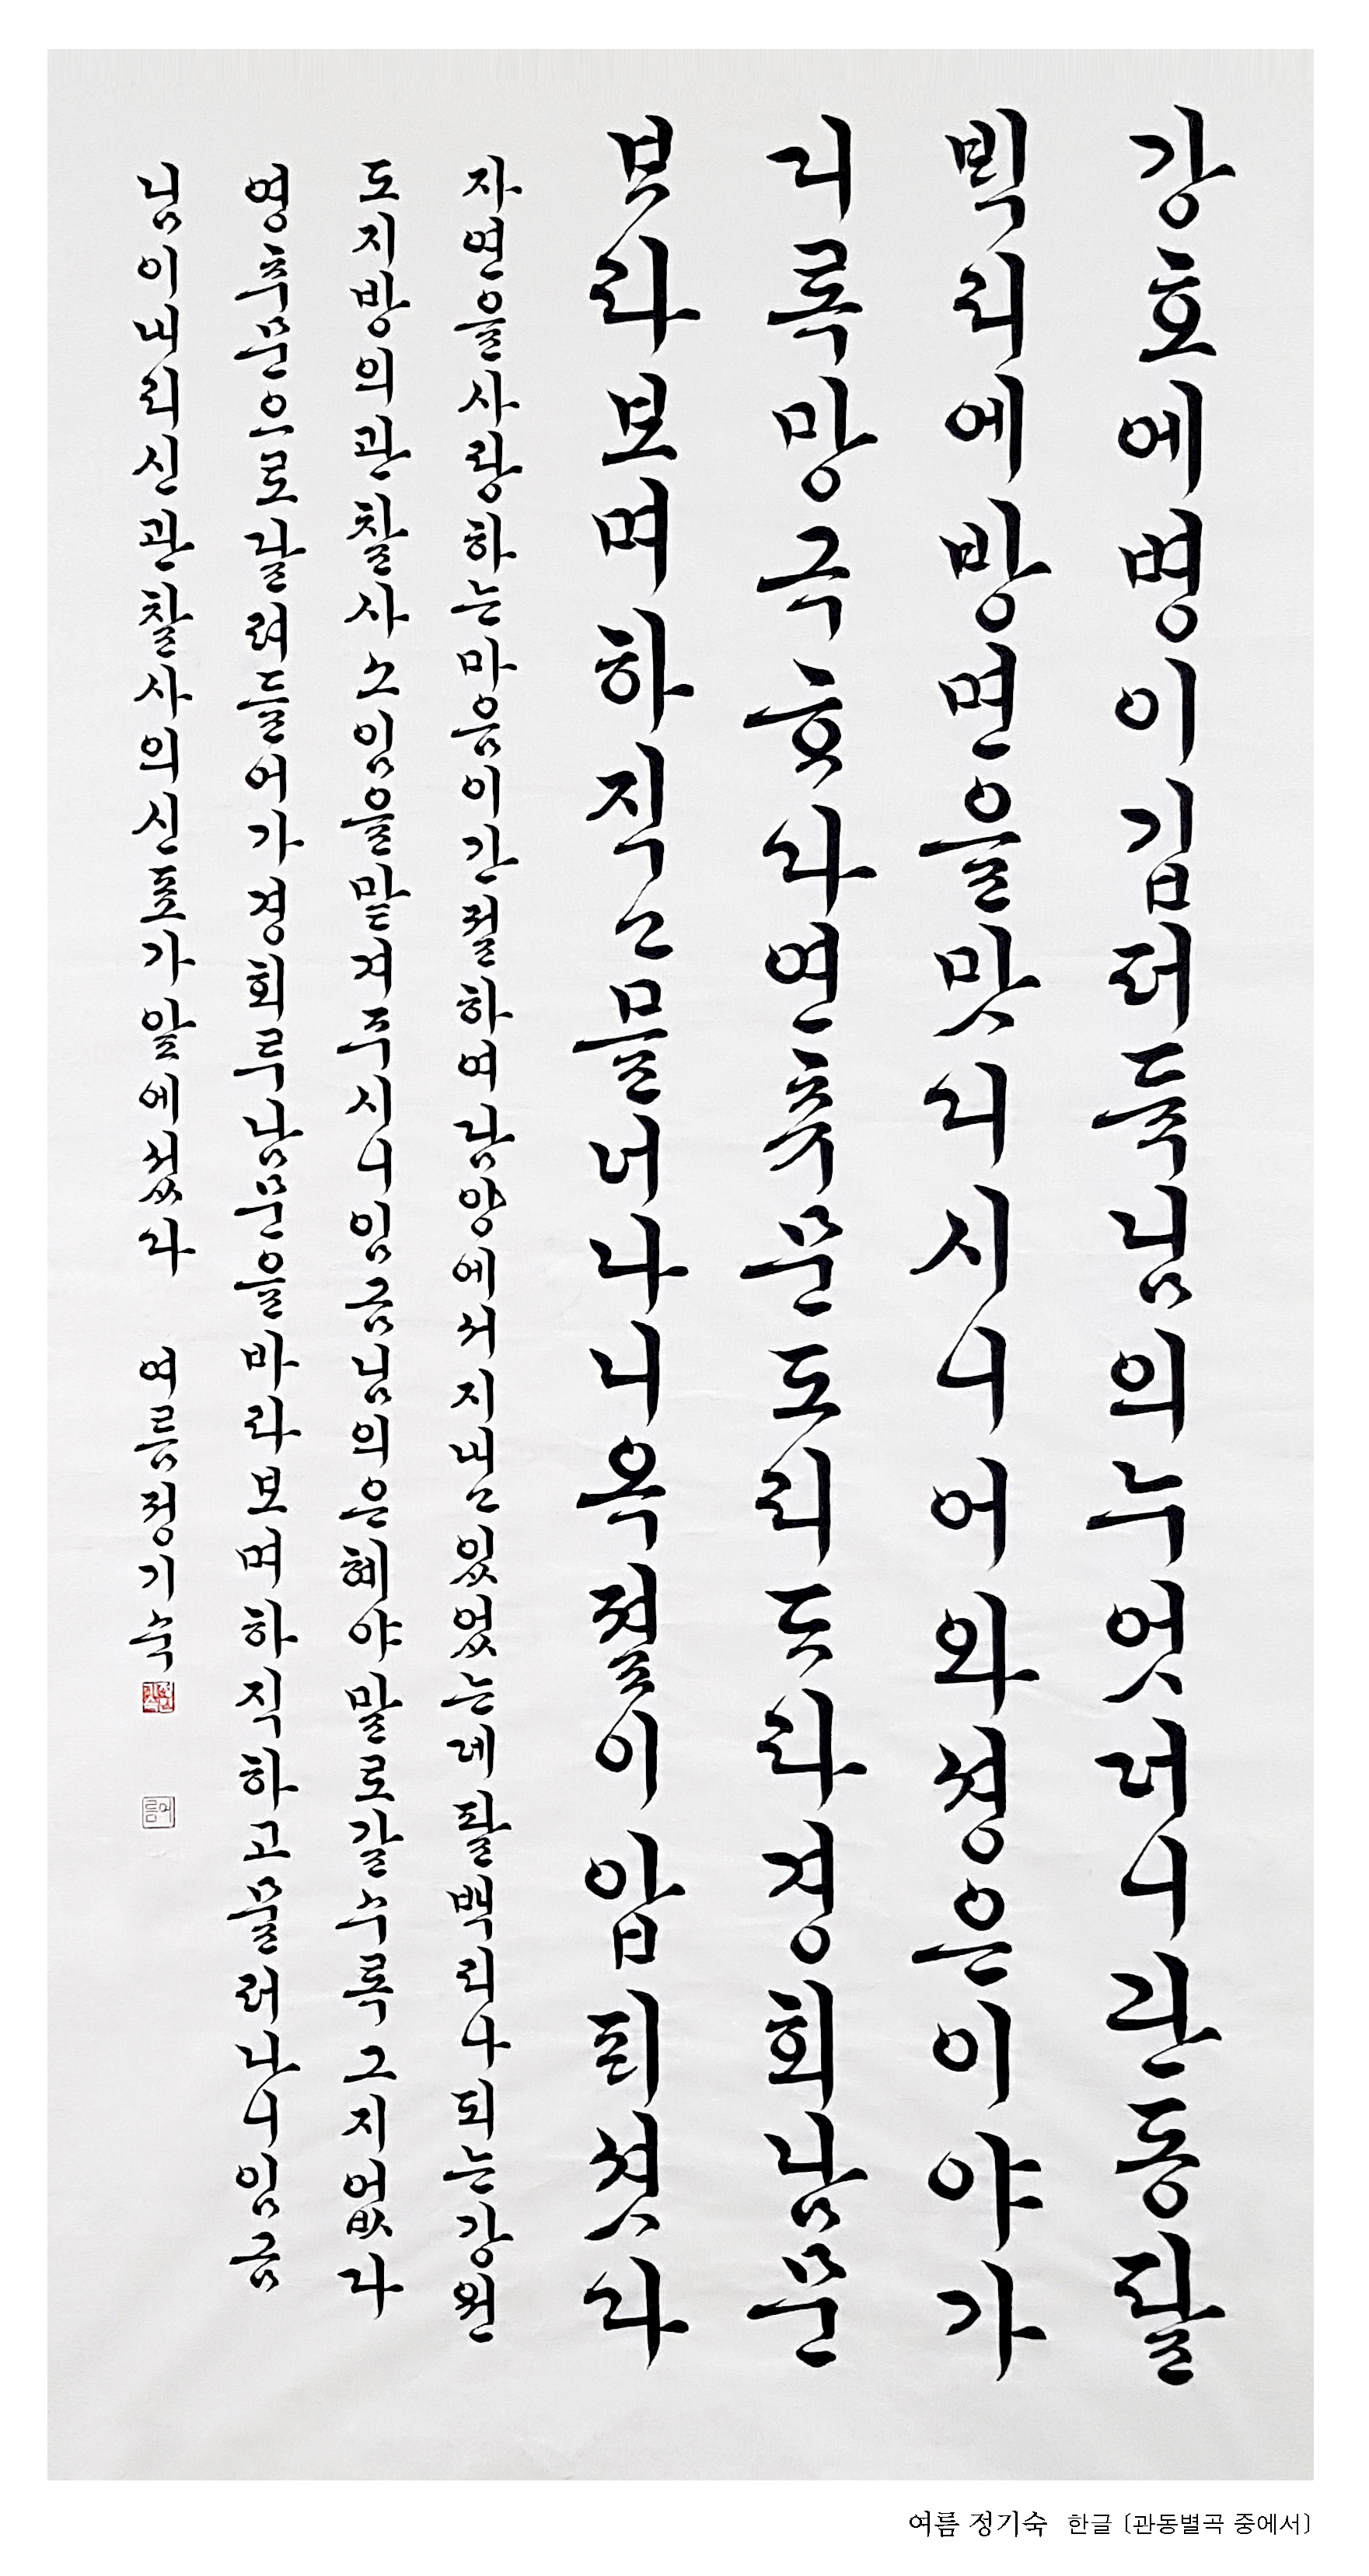 강호에병이깁퍼듁님의누엇더니관동팔
ᄇᆡᆨ리에방면을맛디시니어와셩은이야가
디록망극ᄒᆞ다연츄문도리ᄃᆞ라경회남문
ᄇᆞ라보며하직고믈너나니옥졀이압픠셧다
자연을사랑하는마음이간절하여담양에서지내고있었는데팔백리나되는강원
도지방의관찰사소임을맡겨주시니임금님의은혜야말로갈수록그지없다
영추문으로달려들어가경회루남문을바라보며하직하고물러나니임금
님이내리신관찰사의신표가앞에섰다 여름정기숙
여름
여름 정기숙 한글 [관동별곡 중에서]